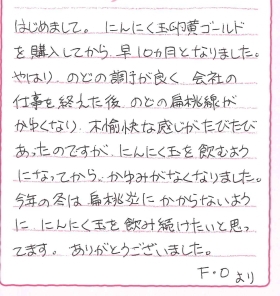 はじめまして。にんにく玉卵黄ゴールド
を購入してから、早10ヵ月となりました。
やはり、のどの調子が良く、会社の
仕事を終えた後、のどの扁桃線が
かゆくなり、不愉快な感じがたびたび
あったのですが、にんにく玉を飲むよう
になってから、かゆみがなくなりました。
今年の冬は扁桃炎にかからないよう
に、にんにく玉を飲み続けたいと思っ
てます。ありがとうございました。
F・Oより